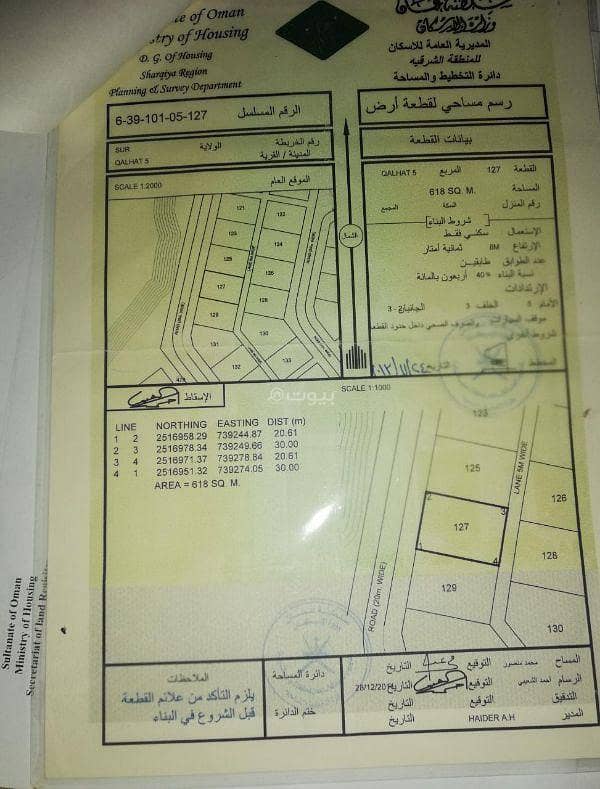 Sultanate of Oman
Ministry of Housing
D. G. Of Housing
Sharqiya Region
Planning & Survey Department
وزارة الإسكان
المديرية العامة للاسكان
للمنطقة الشرقيه
دائرة التخطيط والمساحة
الرقم المسلسل 6-39-101-05-127
رسم مساحي لقطعة أرض
رقم الخريطة
الولاية SUR
المدينة / القرية QALHAT 5
بيانات القطعة
SCALE 1:2000 الموقع العام
القطعة 127 المربع QALHAT 5
المساحة 618 SQ. M.
رقم المنزل السكة المجمع
شروط البناء
الإستعمال سكني فقط
الإرتفاع 8M ثمانية أمتار
عدد الطوابق طابقين
نسبة البناء 40% أربعون بالمائة
الإرتدادات
الأمام 5 الخلف 3 الجانبان 3-3
موقف السيارات والصرف الصحي داخل حدود القطعة
شروط اخرى
المخطط
التاريخ
121
122
123
124
125
126
127
128
129
130
131
132
133
الشمال
SCALE 1:1000
الإسقاط
بيوت
LINE NORTHING EASTING DIST (m)
1 2 2516958.29 739244.87 20.61
2 3 2516978.34 739249.66 30.00
3 4 2516971.37 739278.84 20.61
4 1 2516951.32 739274.05 30.00
AREA = 618 SQ. M.
123
125
LANE 5M WIDE
126
2
3
127
1
4
128
129
130
ROAD (20m. WIDE)
Sultanate of Oman
Ministry of Housing
Secretariat of land
الملاحظات
يلزم التأكد من علائم القطعة
قبل الشروع في البناء
دائرة المساحة
ختم الدائرة
المساح محمد منصور التوقيع التاريخ
الرسام احمد الشعيبي التوقيع التاريخ 28/12/20
التدقيق التوقيع التاريخ
المدير HAIDER A.H التاريخ